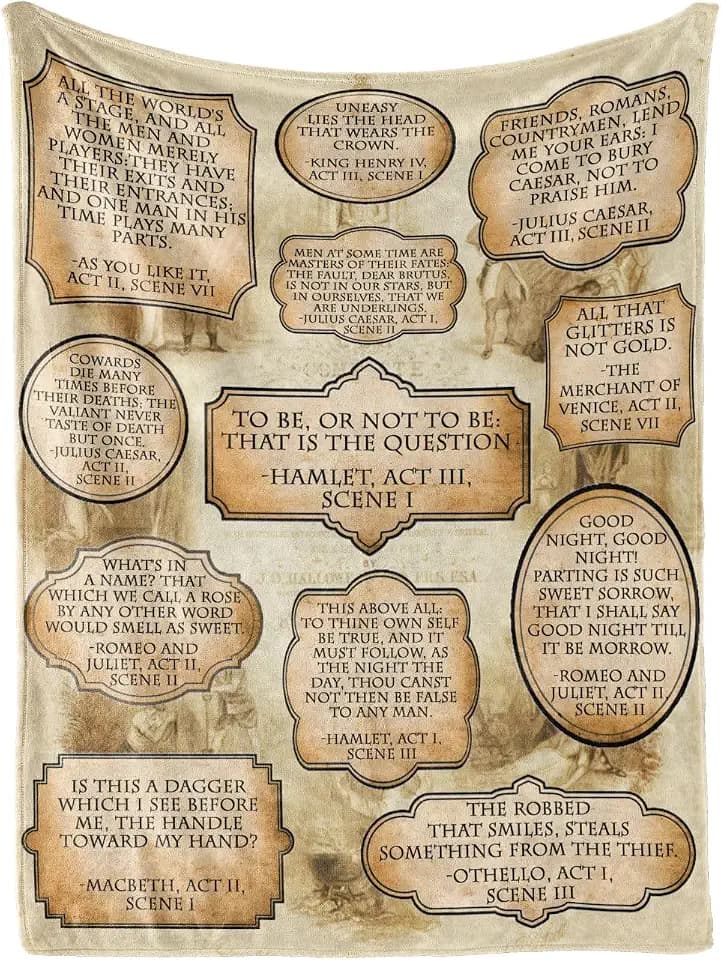 ALL THE WORLD'S
A STAGE, AND ALL
THE MEN AND
WOMEN MERELY
PLAYERS; THEY HAVE
THEIR EXITS AND
THEIR ENTRANCES;
AND ONE MAN IN HIS
TIME PLAYS MANY
PARTS.
-AS YOU LIKE IT,
ACT II, SCENE VII
UNEASY
LIES THE HEAD
THAT WEARS THE
CROWN.
-KING HENRY IV,
ACT III, SCENE I
FRIENDS, ROMANS,
COUNTRYMEN, LEND
ME YOUR EARS: I
COME TO BURY
CAESAR, NOT TO
PRAISE HIM.
-JULIUS CAESAR,
ACT III, SCENE II
MEN AT SOME TIME ARE
MASTERS OF THEIR FATES:
THE FAULT, DEAR BRUTUS,
IS NOT IN OUR STARS, BUT
IN OURSELVES, THAT WE
ARE UNDERLINGS.
-JULIUS CAESAR, ACT I,
SCENE II
ALL THAT
GLITTERS IS
NOT GOLD.
-THE
MERCHANT OF
VENICE, ACT II,
SCENE VII
COWARDS
DIE MANY
TIMES BEFORE
THEIR DEATHS; THE
VALIANT NEVER
TASTE OF DEATH
BUT ONCE.
-JULIUS CAESAR,
ACT II,
SCENE II
TO BE, OR NOT TO BE:
THAT IS THE QUESTION
-HAMLET, ACT III,
SCENE I
GOOD
NIGHT, GOOD
NIGHT!
PARTING IS SUCH
SWEET SORROW,
THAT I SHALL SAY
GOOD NIGHT TILL
IT BE MORROW.
-ROMEO AND
JULIET, ACT II,
SCENE II
BY
WHAT'S IN
A NAME? THAT
WHICH WE CALL A ROSE
BY ANY OTHER WORD
WOULD SMELL AS SWEET.
-ROMEO AND
JULIET, ACT II,
SCENE II
THIS ABOVE ALL:
TO THINE OWN SELF
BE TRUE, AND IT
MUST FOLLOW, AS
THE NIGHT THE
DAY, THOU CANST
NOT THEN BE FALSE
TO ANY MAN.
-HAMLET, ACT I,
SCENE III
IS THIS A DAGGER
WHICH I SEE BEFORE
ME, THE HANDLE
TOWARD MY HAND?
-MACBETH, ACT II,
SCENE I
THE ROBBED
THAT SMILES, STEALS
SOMETHING FROM THE THIEF.
-OTHELLO, ACT I,
SCENE III